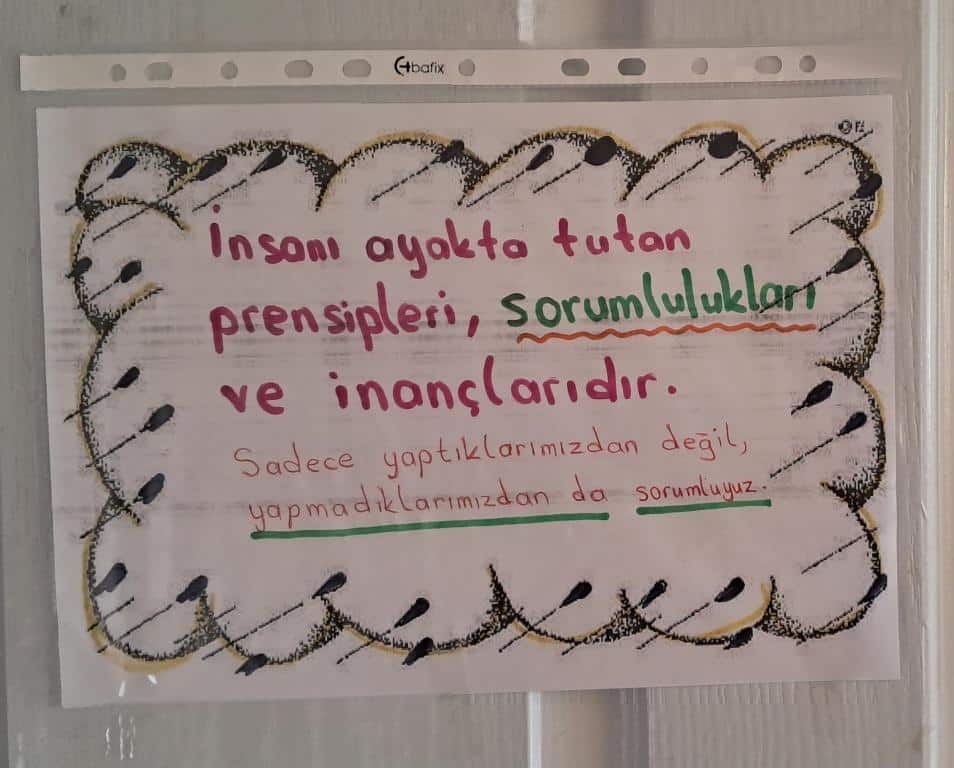 bafix
İnsanı ayakta tutan
prensipleri, sorumlulukları
ve inançlarıdır.
Sadece yaptıklarımızdan değil,
yapmadıklarımızdan da sorumluyuz.